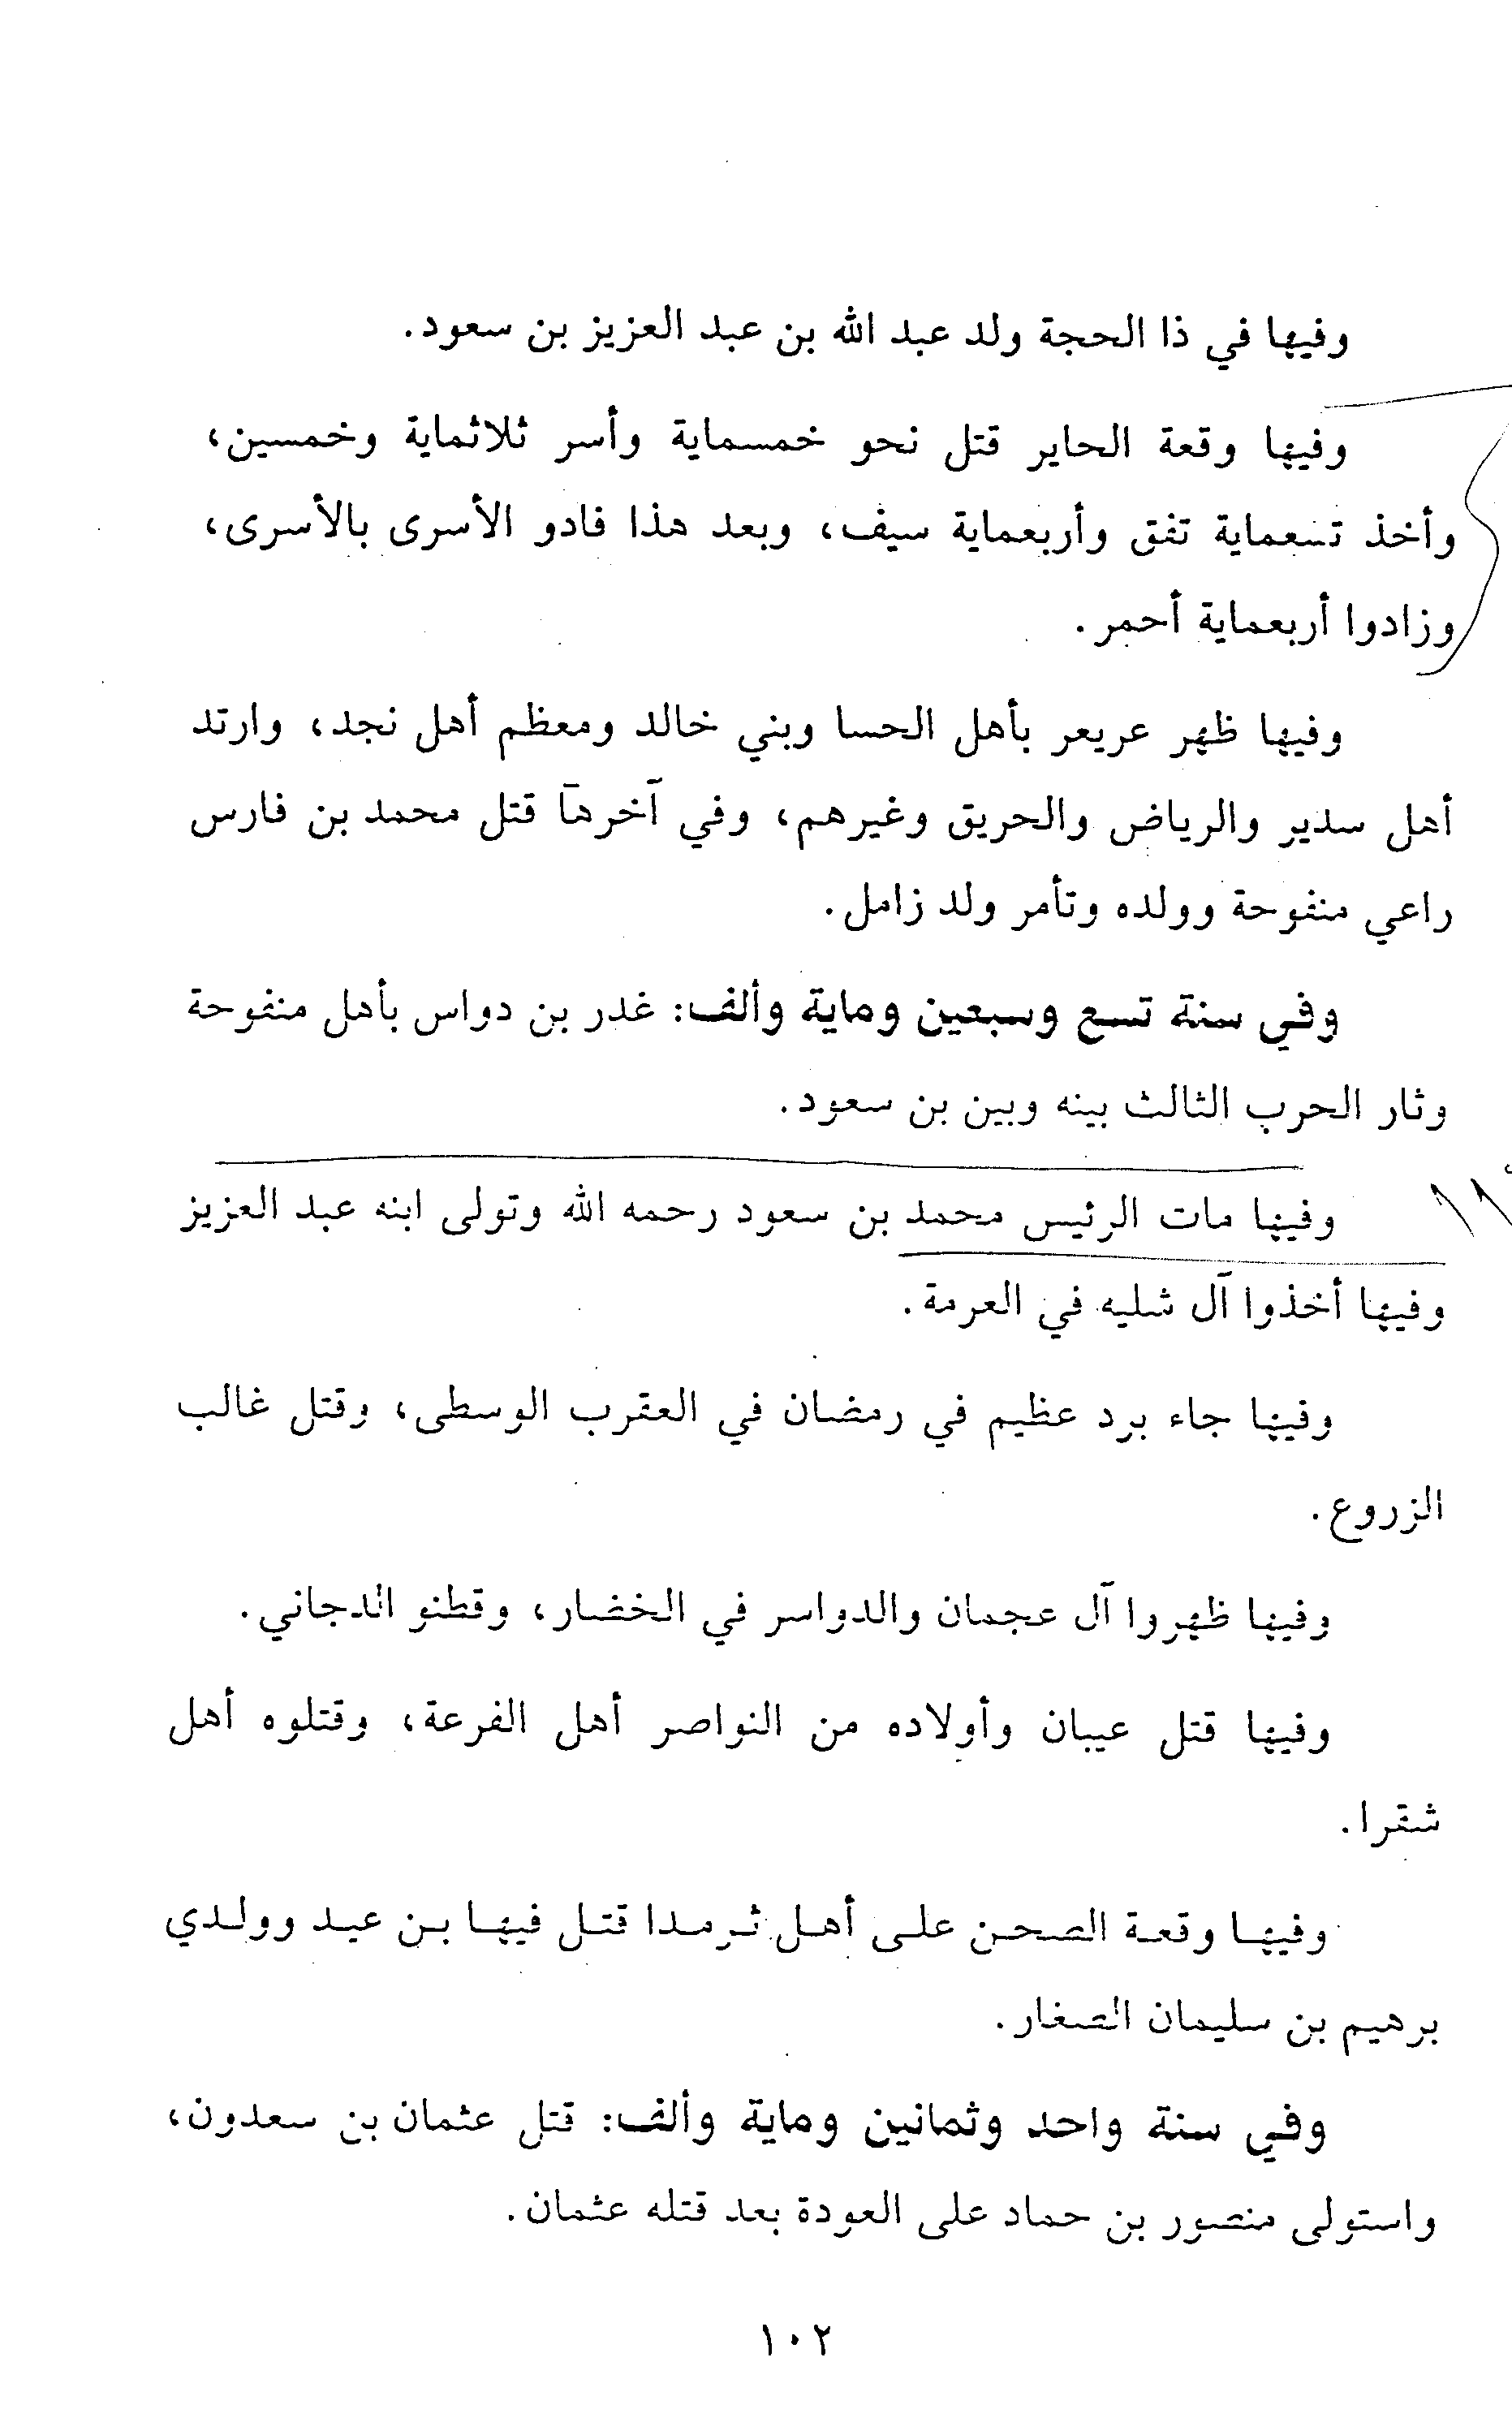 وفيها في ذا الحجة ولد عبد الله بن عبد العزيز بن سعود.
وفيها وقعة الحاير قتل نحو خمسماية وأسر ثلاثماية وخمسين،
وأخذ تسعماية تفق وأربعماية سيف، وبعد هذا فادو الأسرى بالأسرى،
وزادوا أربعماية أحمر.
وفيها ظهر عريعر بأهل الحسا وبني خالد ومعظم أهل نجد، وارتد
أهل سدير والرياض والحريق وغيرهم، وفي آخرها قتل محمد بن فارس
راعي منفوحة وولده وتأمر ولد زامل.
وفي سنة تسع وسبعين وماية وألف: غدر بن دواس بأهل منفوحة
وثار الحرب الثالث بينه وبين بن سعود.
وفيها مات الرئيس محمد بن سعود رحمه الله وتولى ابنه عبد العزيز
وفيها أخذوا آل شليه في العرمة.
وفيها جاء برد عظيم في رمضان في العقرب الوسطى، وقتل غالب
الزروع.
وفيها ظهروا آل عجمان والدواسر في الخضار، وقطنو الدجاني.
وفيها قتل عيبان وأولاده من النواصر أهل الفرعة، وقتلوه أهل
شقرا.
وفيها وقعة الصحن على أهل ثرمدا قتل فيها بن عيد وولدي
برهيم بن سليمان الصغار.
وفي سنة واحد وثمانين وماية وألف: قتل عثمان بن سعدون،
واستولى منصور بن حماد على العودة بعد قتله عثمان.
١٠٢